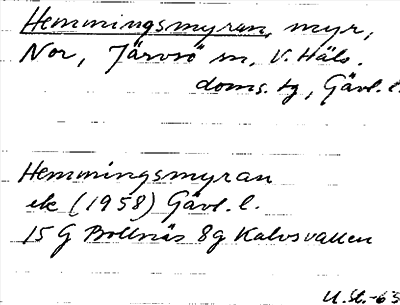 Hemmingsmyran, myr,
Nor, Järvsö sn, V. Häls.
doms. tg, Gävl. l.
Hemmingsmyran
ek (1958) Gävl. l.
15 G Bollnäs 8g Kalvsvallen
U.St.-65